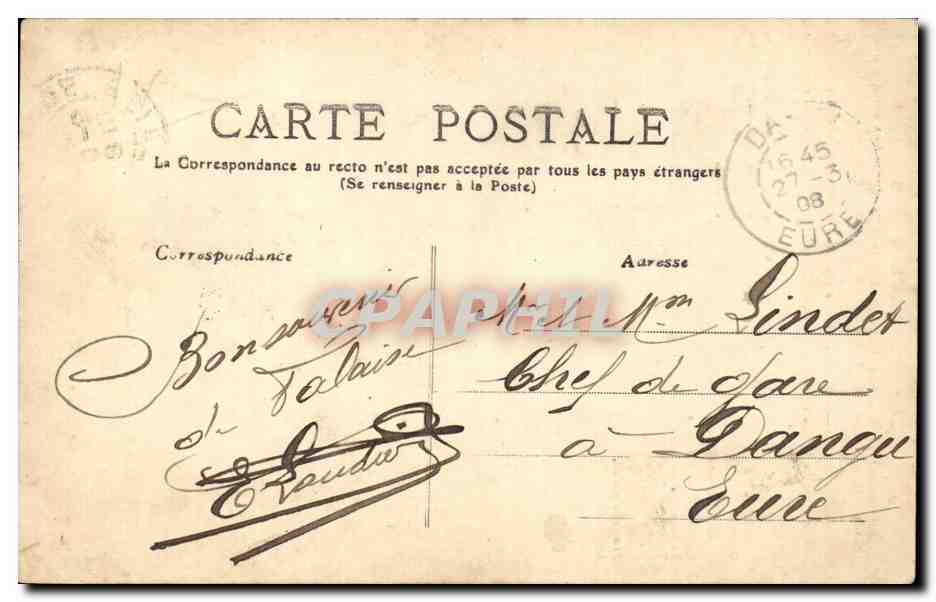 CARTE POSTALE
La Correspondance au recto n'est pas acceptée par tous les pays étrangers
(Se renseigner à la Poste)
DA
16 45
27 - 3
08
EURE
Correspondance
Adresse
CPAPHIL
Bon souvenir
de Falaise
Mr et Mme Lindet
Chef de gare
à Dangu
Eure